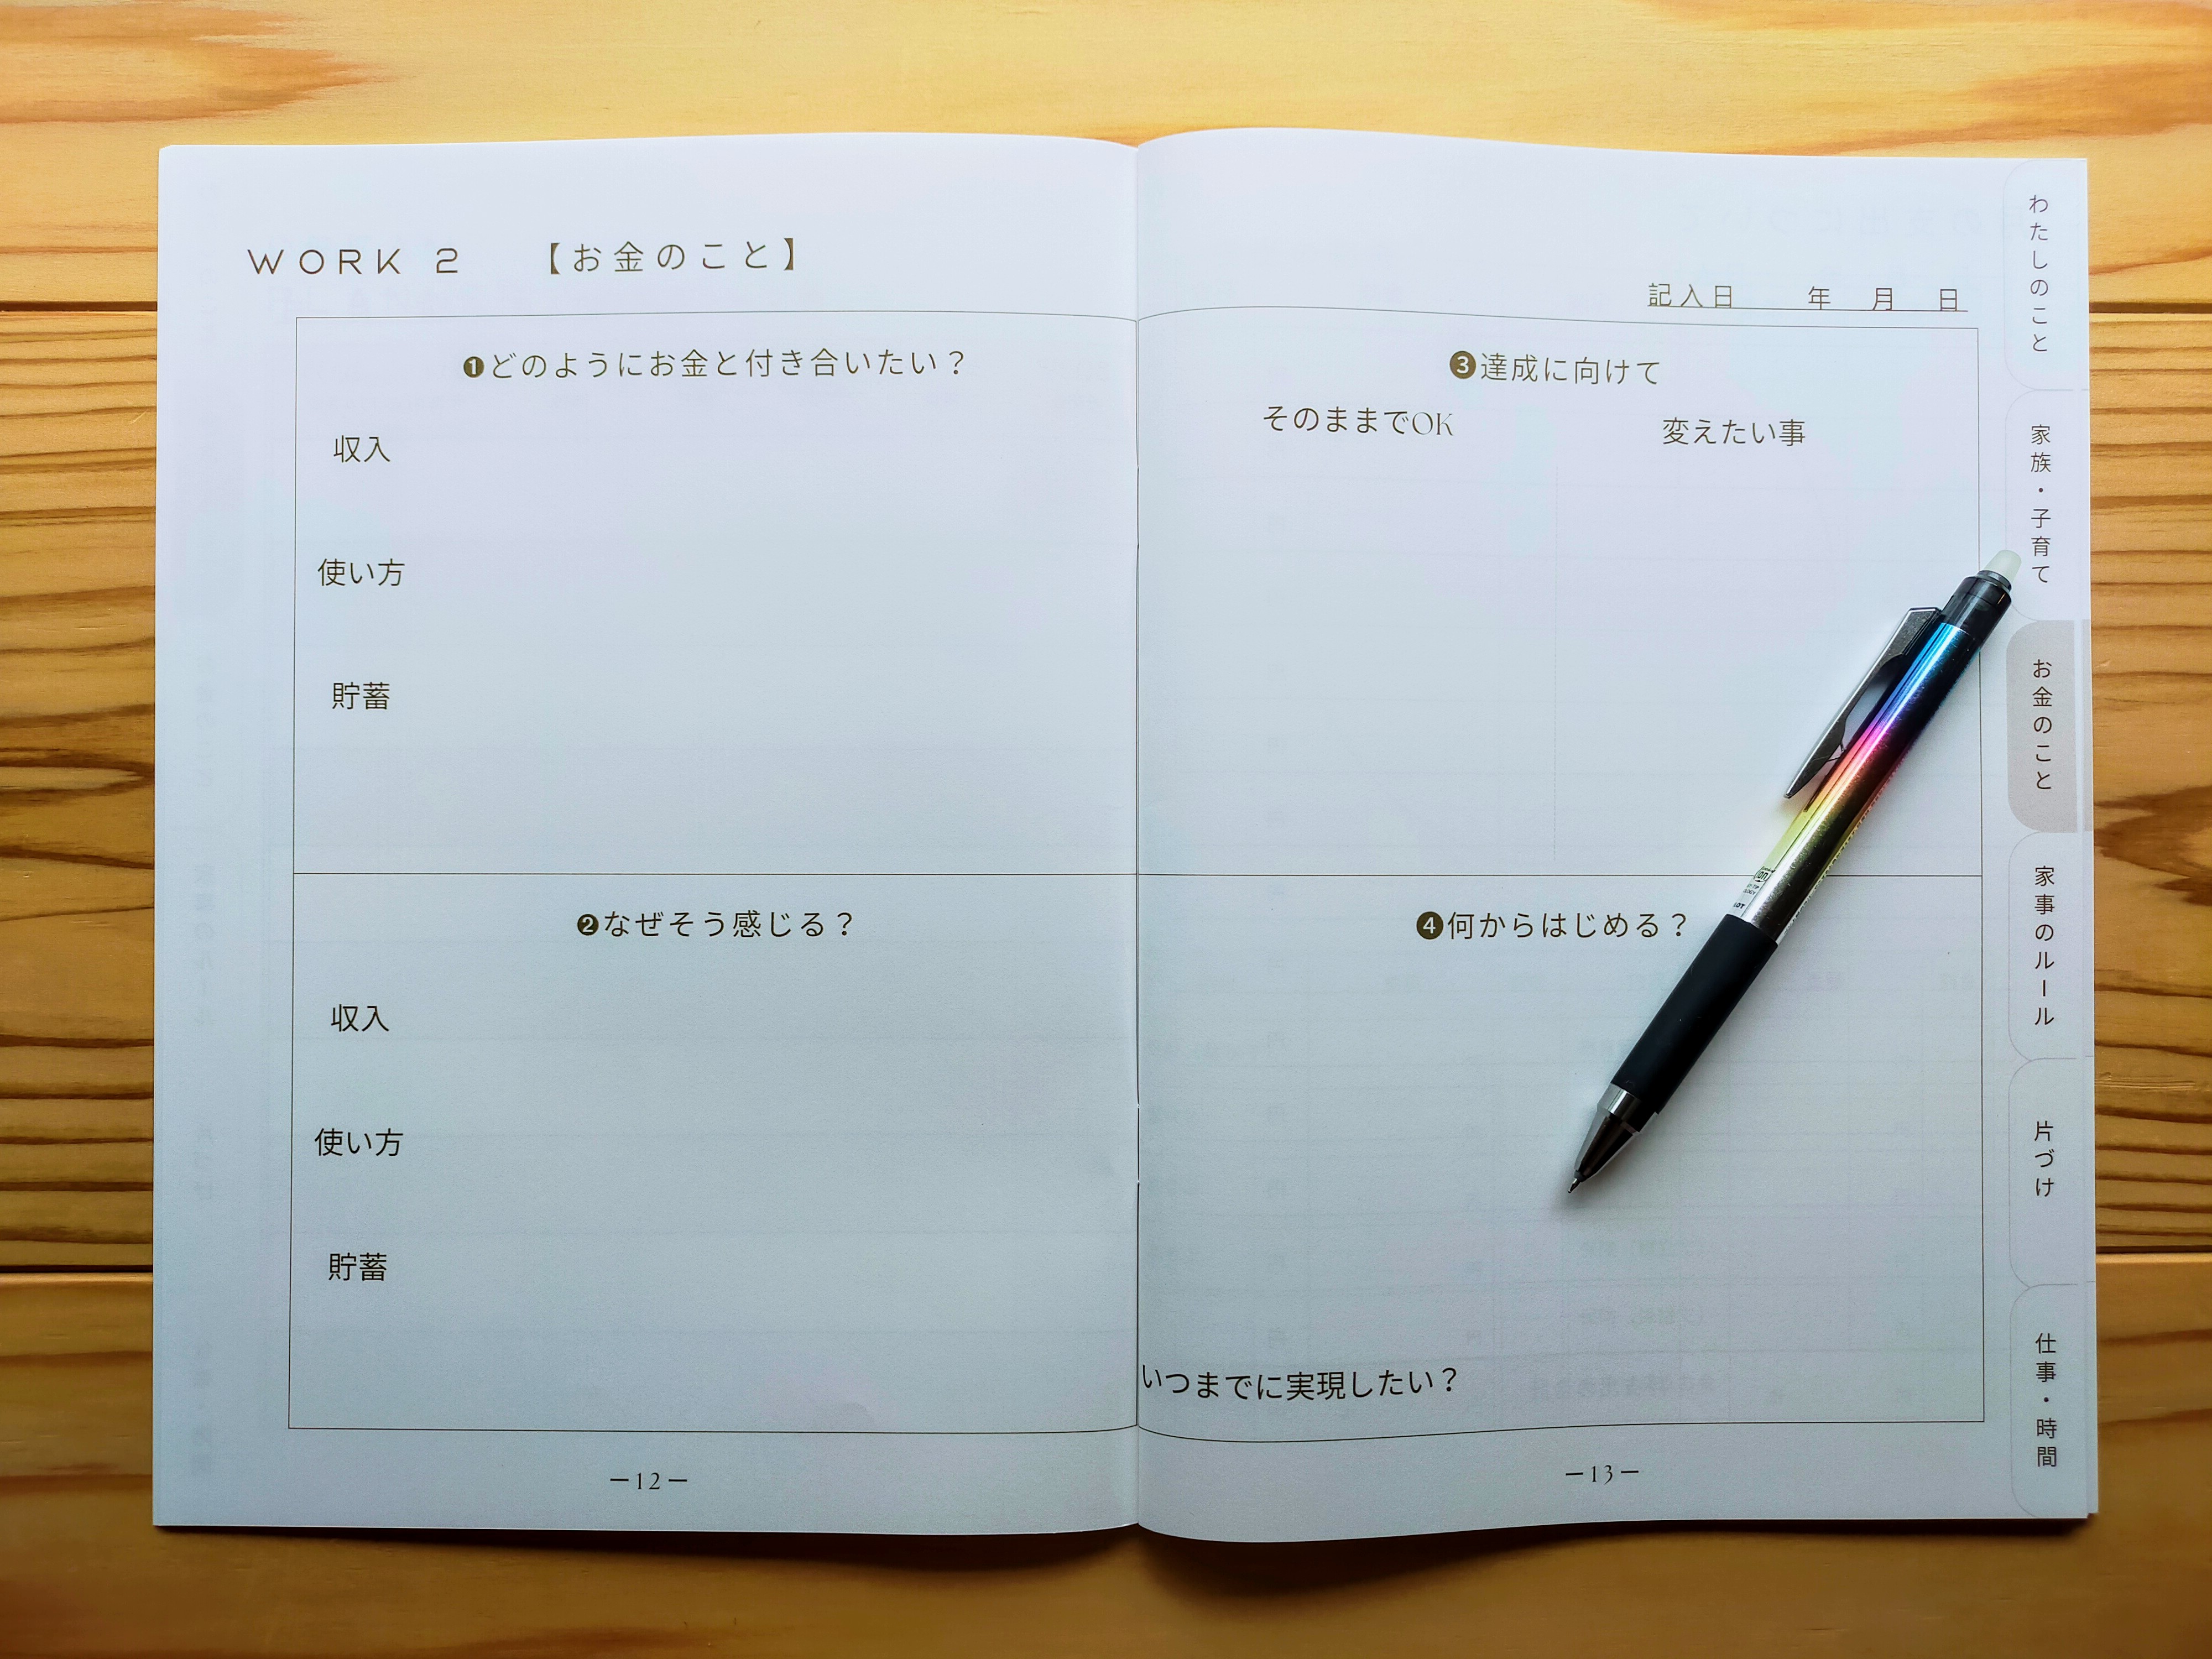 WORK 2 【お金のこと】
❶どのようにお金と付き合いたい？
収入
使い方
貯蓄
❷なぜそう感じる？
収入
使い方
貯蓄
ー12ー
記入日 年 月 日
❸達成に向けて
そのままでOK
変えたい事
❹何からはじめる？
いつまでに実現したい？
ー13ー
わたしのこと
家族・子育て
お金のこと
家事のルール
片づけ
仕事・時間